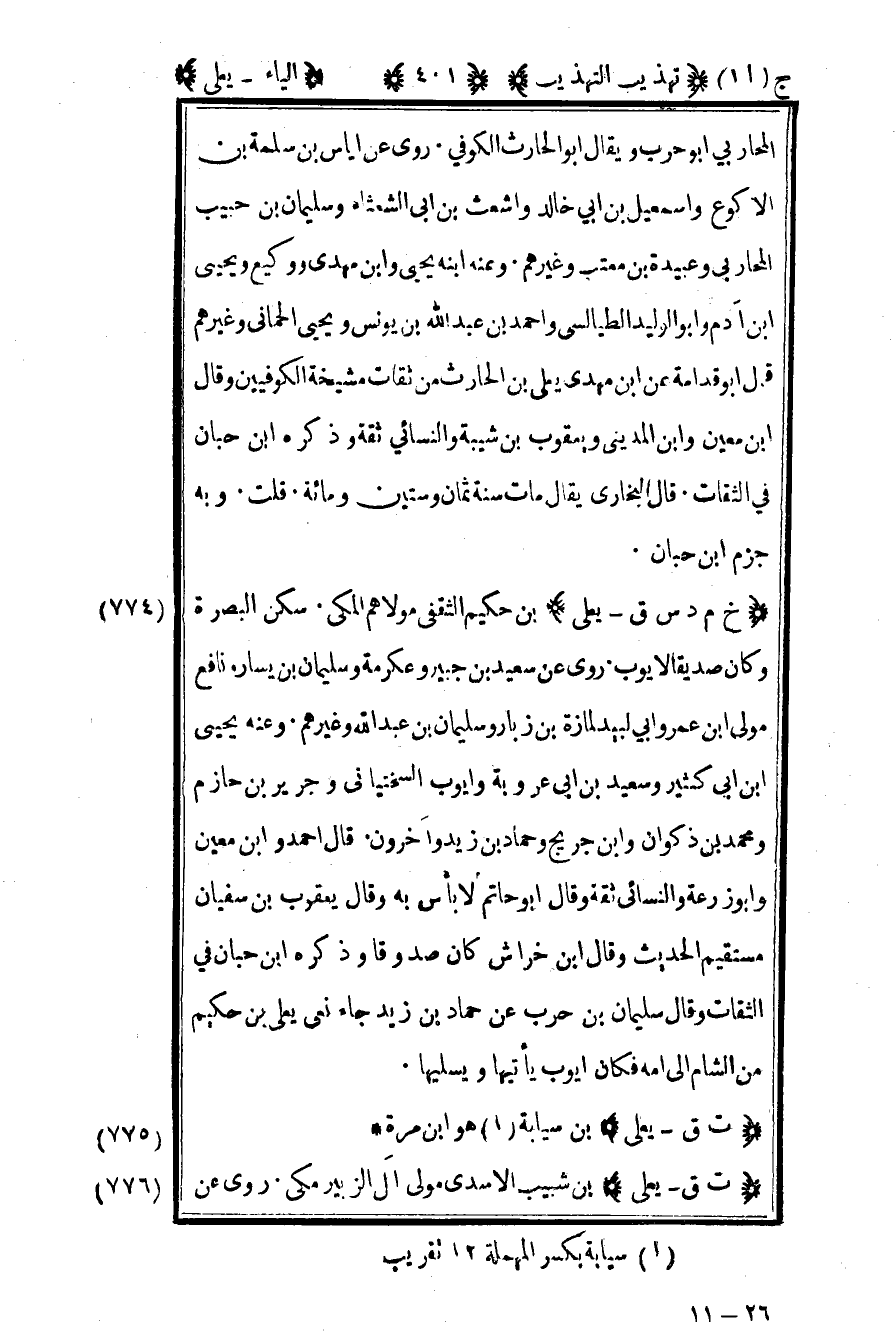 ج (١١) ﴿ تهذيب التهذيب ﴾ ﴿ ٤٠١ ﴾ ﴿ الياء - يعلى ﴾
المحاربي ابو حرب و يقال ابو الحارث الكوفي ٠ روى عن اياس بن سلمة بن
الاكوع واسمعيل بن ابي خالد واشعث بن ابى الشعثاء وسليمان بن حبيب
المحاربي وعبيدة بن معتب وغيرهم ٠ وعنه ابنه يحيى وابن مهدى ووكيع ويحيى
ابن آدم وابو الوليد الطيالسى واحمد بن عبد الله بن يونس ويحيى الحمانى وغيرهم
قال ابو قدامة عن ابن مهدى يعلى بن الحارث من ثقات مشيخة الكوفيين وقال
ابن معين وابن المدينى ويعقوب بن شيبة والنسائي ثقة و ذكره ابن حبان
في الثقات ٠ قال البخارى يقال مات سنة ثمان وستين ومائة ٠ قلت ٠ و به
جزم ابن حبان ٠
﴿ خ م د س ق - يعلى ﴾ بن حكيم الثقفى مولاهم المكى ٠ سكن البصرة (٧٧٤)
وكان صديقا لايوب ٠ روى عن سعيد بن جبير وعكرمة وسليمان بن يسار و نافع
مولى ابن عمر وابي لبيد لمازة بن زبار وسليمان بن عبد الله وغيرهم ٠ وعنه يحيى
ابن ابى كثير وسعيد بن ابى عروبة وايوب السختيانى و جرير بن حازم
ومحمد بن ذكوان وابن جريج وحماد بن زيد وآخرون ٠ قال احمد و ابن معين
وابو زرعة والنسائى ثقة وقال ابو حاتم لا بأس به وقال يعقوب بن سفيان
مستقيم الحديث وقال ابن خراش كان صدوقا و ذكره ابن حبان في
الثقات وقال سليمان بن حرب عن حماد بن زيد جاء نعى يعلى بن حكيم
من الشام الى امه فكان ايوب يأتيها و يسليها ٠
﴿ ت ق - يعلى ﴾ بن سيابة (١) هو ابن مرة * (٧٧٥)
﴿ ت ق - يعلى ﴾ بن شبيب الاسدى مولى آل الزبير مكى ٠ روى عن (٧٧٦)
(١) سيابة بكسر المهملة ١٢ تقريب
٢٦ - ١١